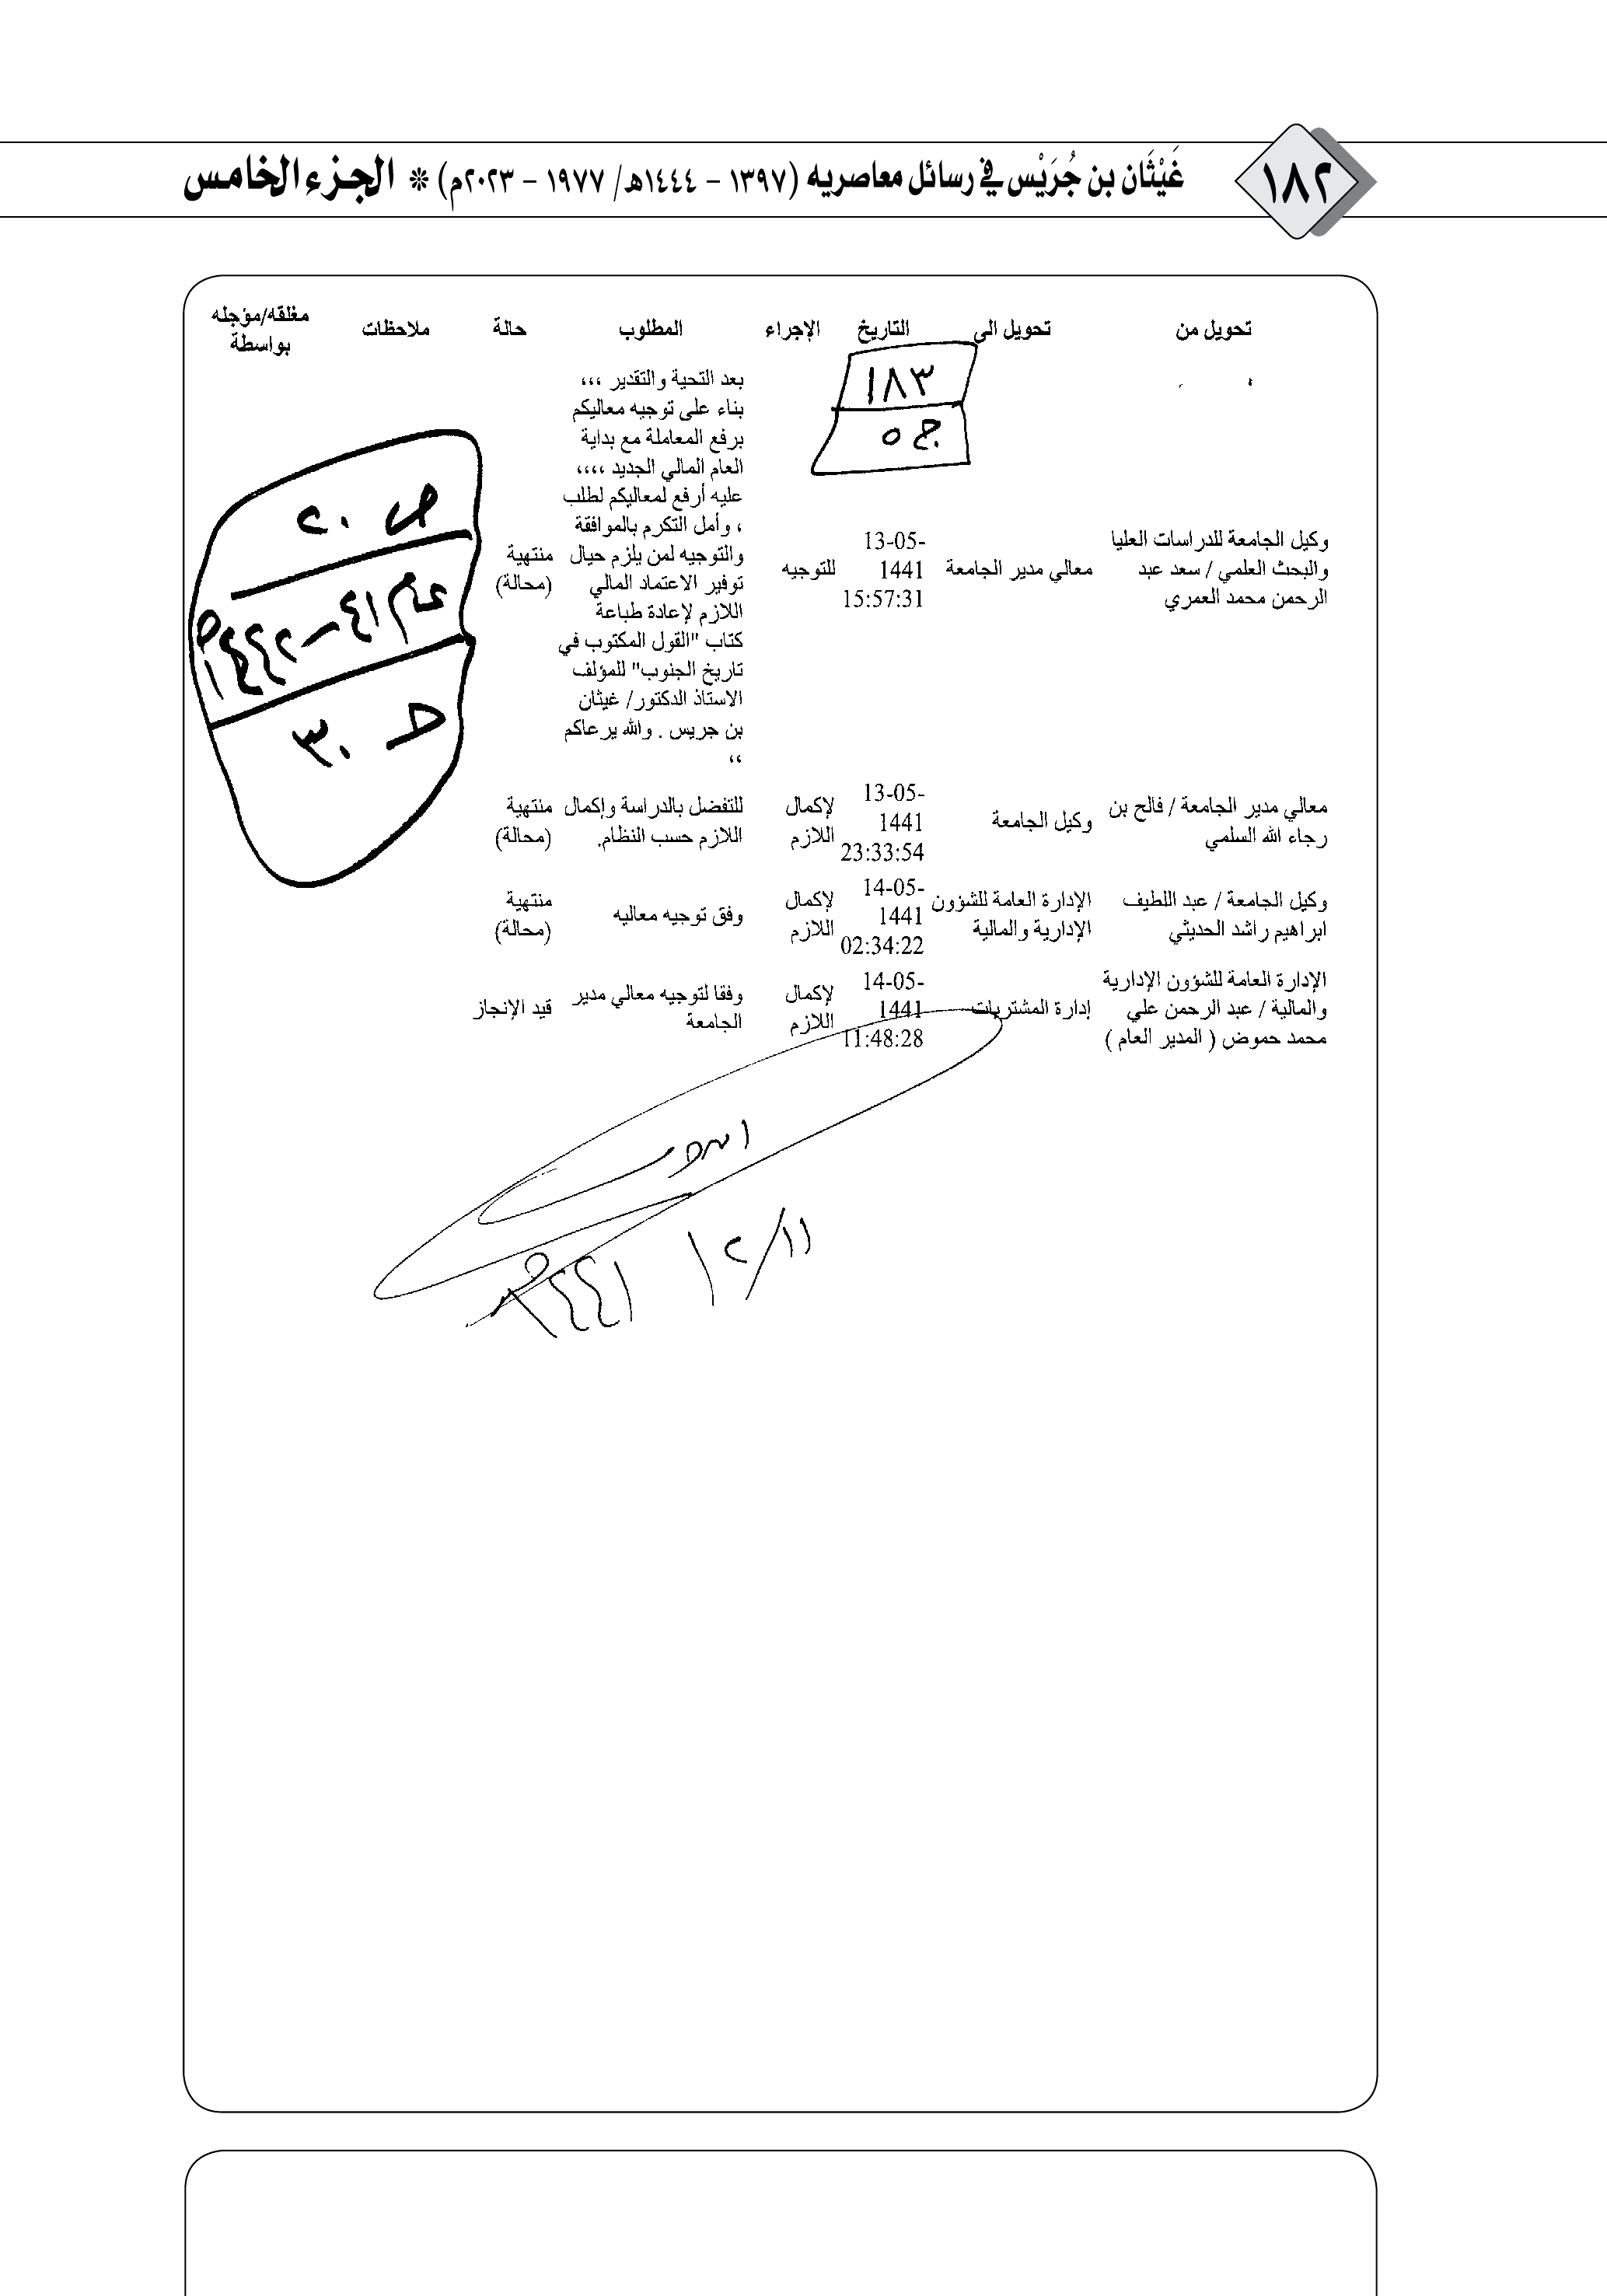 ١٨٢
غَيْثَان بن جُرَيْس في رسائل معاصريه (١٣٩٧ - ١٤٤٤هـ/ ١٩٧٧ - ٢٠٢٣م) * الجزء الخامس
تحويل من تحويل الى التاريخ الإجراء المطلوب حالة ملاحظات مغلقه/مؤجله
بواسطة
١٨٣
ج ٥
ص ٢٠
عام ٤١ - ١٤٤٢هـ
ح ٣٠
وكيل الجامعة للدراسات العليا
والبحث العلمي / سعد عبد
الرحمن محمد العمري
معالي مدير الجامعة
13-05-
1441
15:57:31
للتوجيه
بعد التحية والتقدير ،،،
بناء على توجيه معاليكم
برفع المعاملة مع بداية
العام المالي الجديد ،،،،
عليه أرفع لمعاليكم لطلب
، وأمل التكرم بالموافقة
والتوجيه لمن يلزم حيال
توفير الاعتماد المالي
اللازم لإعادة طباعة
كتاب "القول المكتوب في
تاريخ الجنوب" للمؤلف
الاستاذ الدكتور/ غيثان
بن جريس . والله يرعاكم
،،
منتهية
(محالة)
معالي مدير الجامعة / فالح بن
رجاء الله السلمي
وكيل الجامعة
13-05-
1441
23:33:54
لإكمال
اللازم
للتفضل بالدراسة وإكمال
اللازم حسب النظام.
منتهية
(محالة)
وكيل الجامعة / عبد اللطيف
ابراهيم راشد الحديثي
الإدارة العامة للشؤون
الإدارية والمالية
14-05-
1441
02:34:22
لإكمال
اللازم
وفق توجيه معاليه
منتهية
(محالة)
الإدارة العامة للشؤون الإدارية
والمالية / عبد الرحمن علي
محمد حموض ( المدير العام )
إدارة المشتريات
14-05-
1441
11:48:28
لإكمال
اللازم
وفقا لتوجيه معالي مدير
الجامعة
قيد الإنجاز